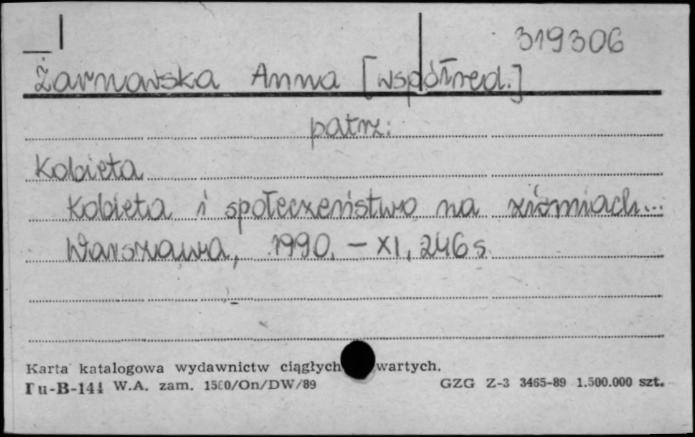 319306
Żarnowska Anna [współred.]
patrz:
Kobieta
Kobieta i społeczeństwo na ziemiach...
Warszawa, 1990. – XI, 246 s.
Karta katalogowa wydawnictw ciągłych wartych.
Pu-B-141 W.A. zam. 1500/On/DW/89 GZG Z-3 3465-89 1.500.000 szt.